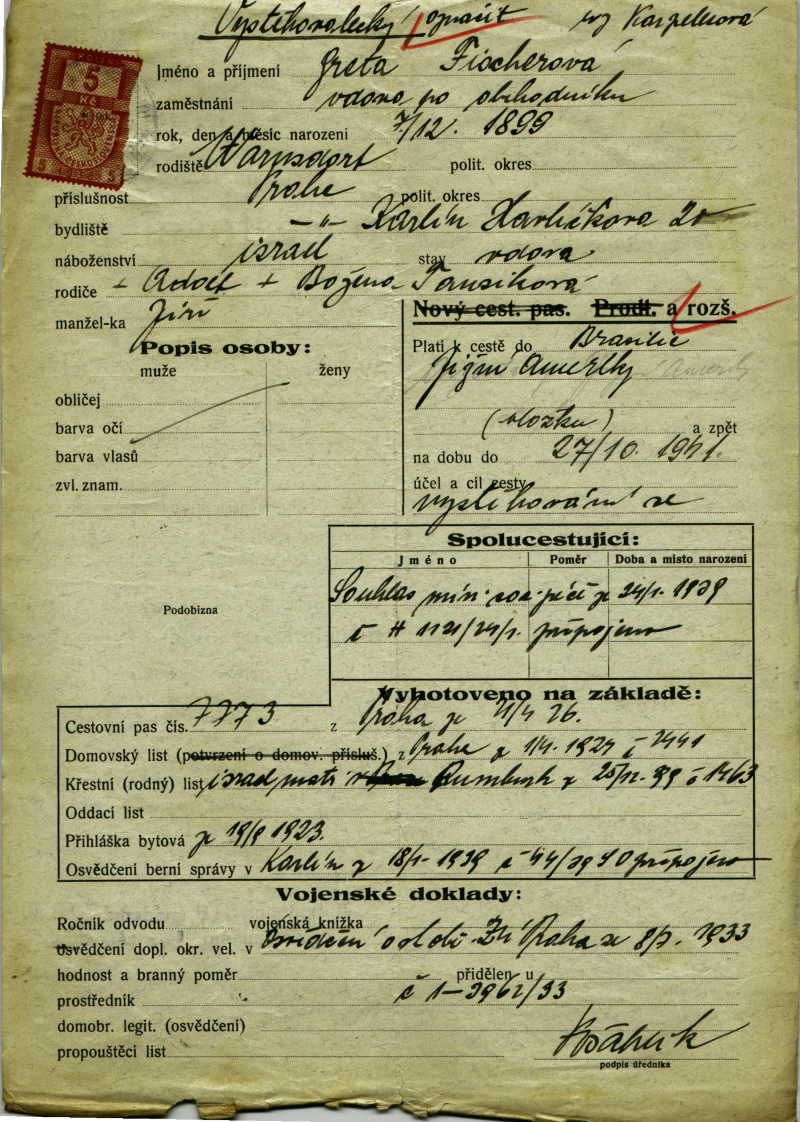 Vystěhovalecký opravit roz Karpelesová
5
Kč
5 5
Jméno a příjmení Greta Fischerová
zaměstnání vdova po obchodníku
rok, den a měsíc narození 7/12. 1899
rodiště Warnsdorf polit. okres
příslušnost Praha polit. okres
bydliště -"- Karlín Havlíčkova 20
náboženství israel stav vdova
rodiče + Adolf + Božena
manžel-ka Jiří
Nový cest. pas. Prodl. a rozš.
Popis osoby:
muže ženy
Platí k cestě do Brasilie
Jižní Ameriky
obličej
barva očí (vložku) a zpět
barva vlasů na dobu do 27/10. 1941.
zvl. znam. účel a cíl cesty
vystěhování se
Spolucestující:
Jméno Poměr Doba a místo narození
Podobizna
Souhlas min. soc. péče z 24/1. 1939
č H 1121/24/1. připojeno
Vyhotoveno na základě:
Cestovní pas čís. 7773 z Praha ze 26.
Domovský list (potvrzení o domov. přísluš.) z Praha z 1/4. 1924 č 2441
Křestní (rodný) list israel matr Rumburk z 25/12. 99 č 1463
Oddací list
Přihláška bytová ze 19/9 1923.
Osvědčení berní správy v Karlín z 18/1 1939 č 44/39 připojeno
Vojenské doklady:
Ročník odvodu vojenská knížka
osvědčení dopl. okr. vel. v Osvědčení Praha ze 1933
hodnost a branný poměr přidělen u
prostředník č 1-3962/33
domobr. legit. (osvědčení)
propouštěcí list
podpis úředníka